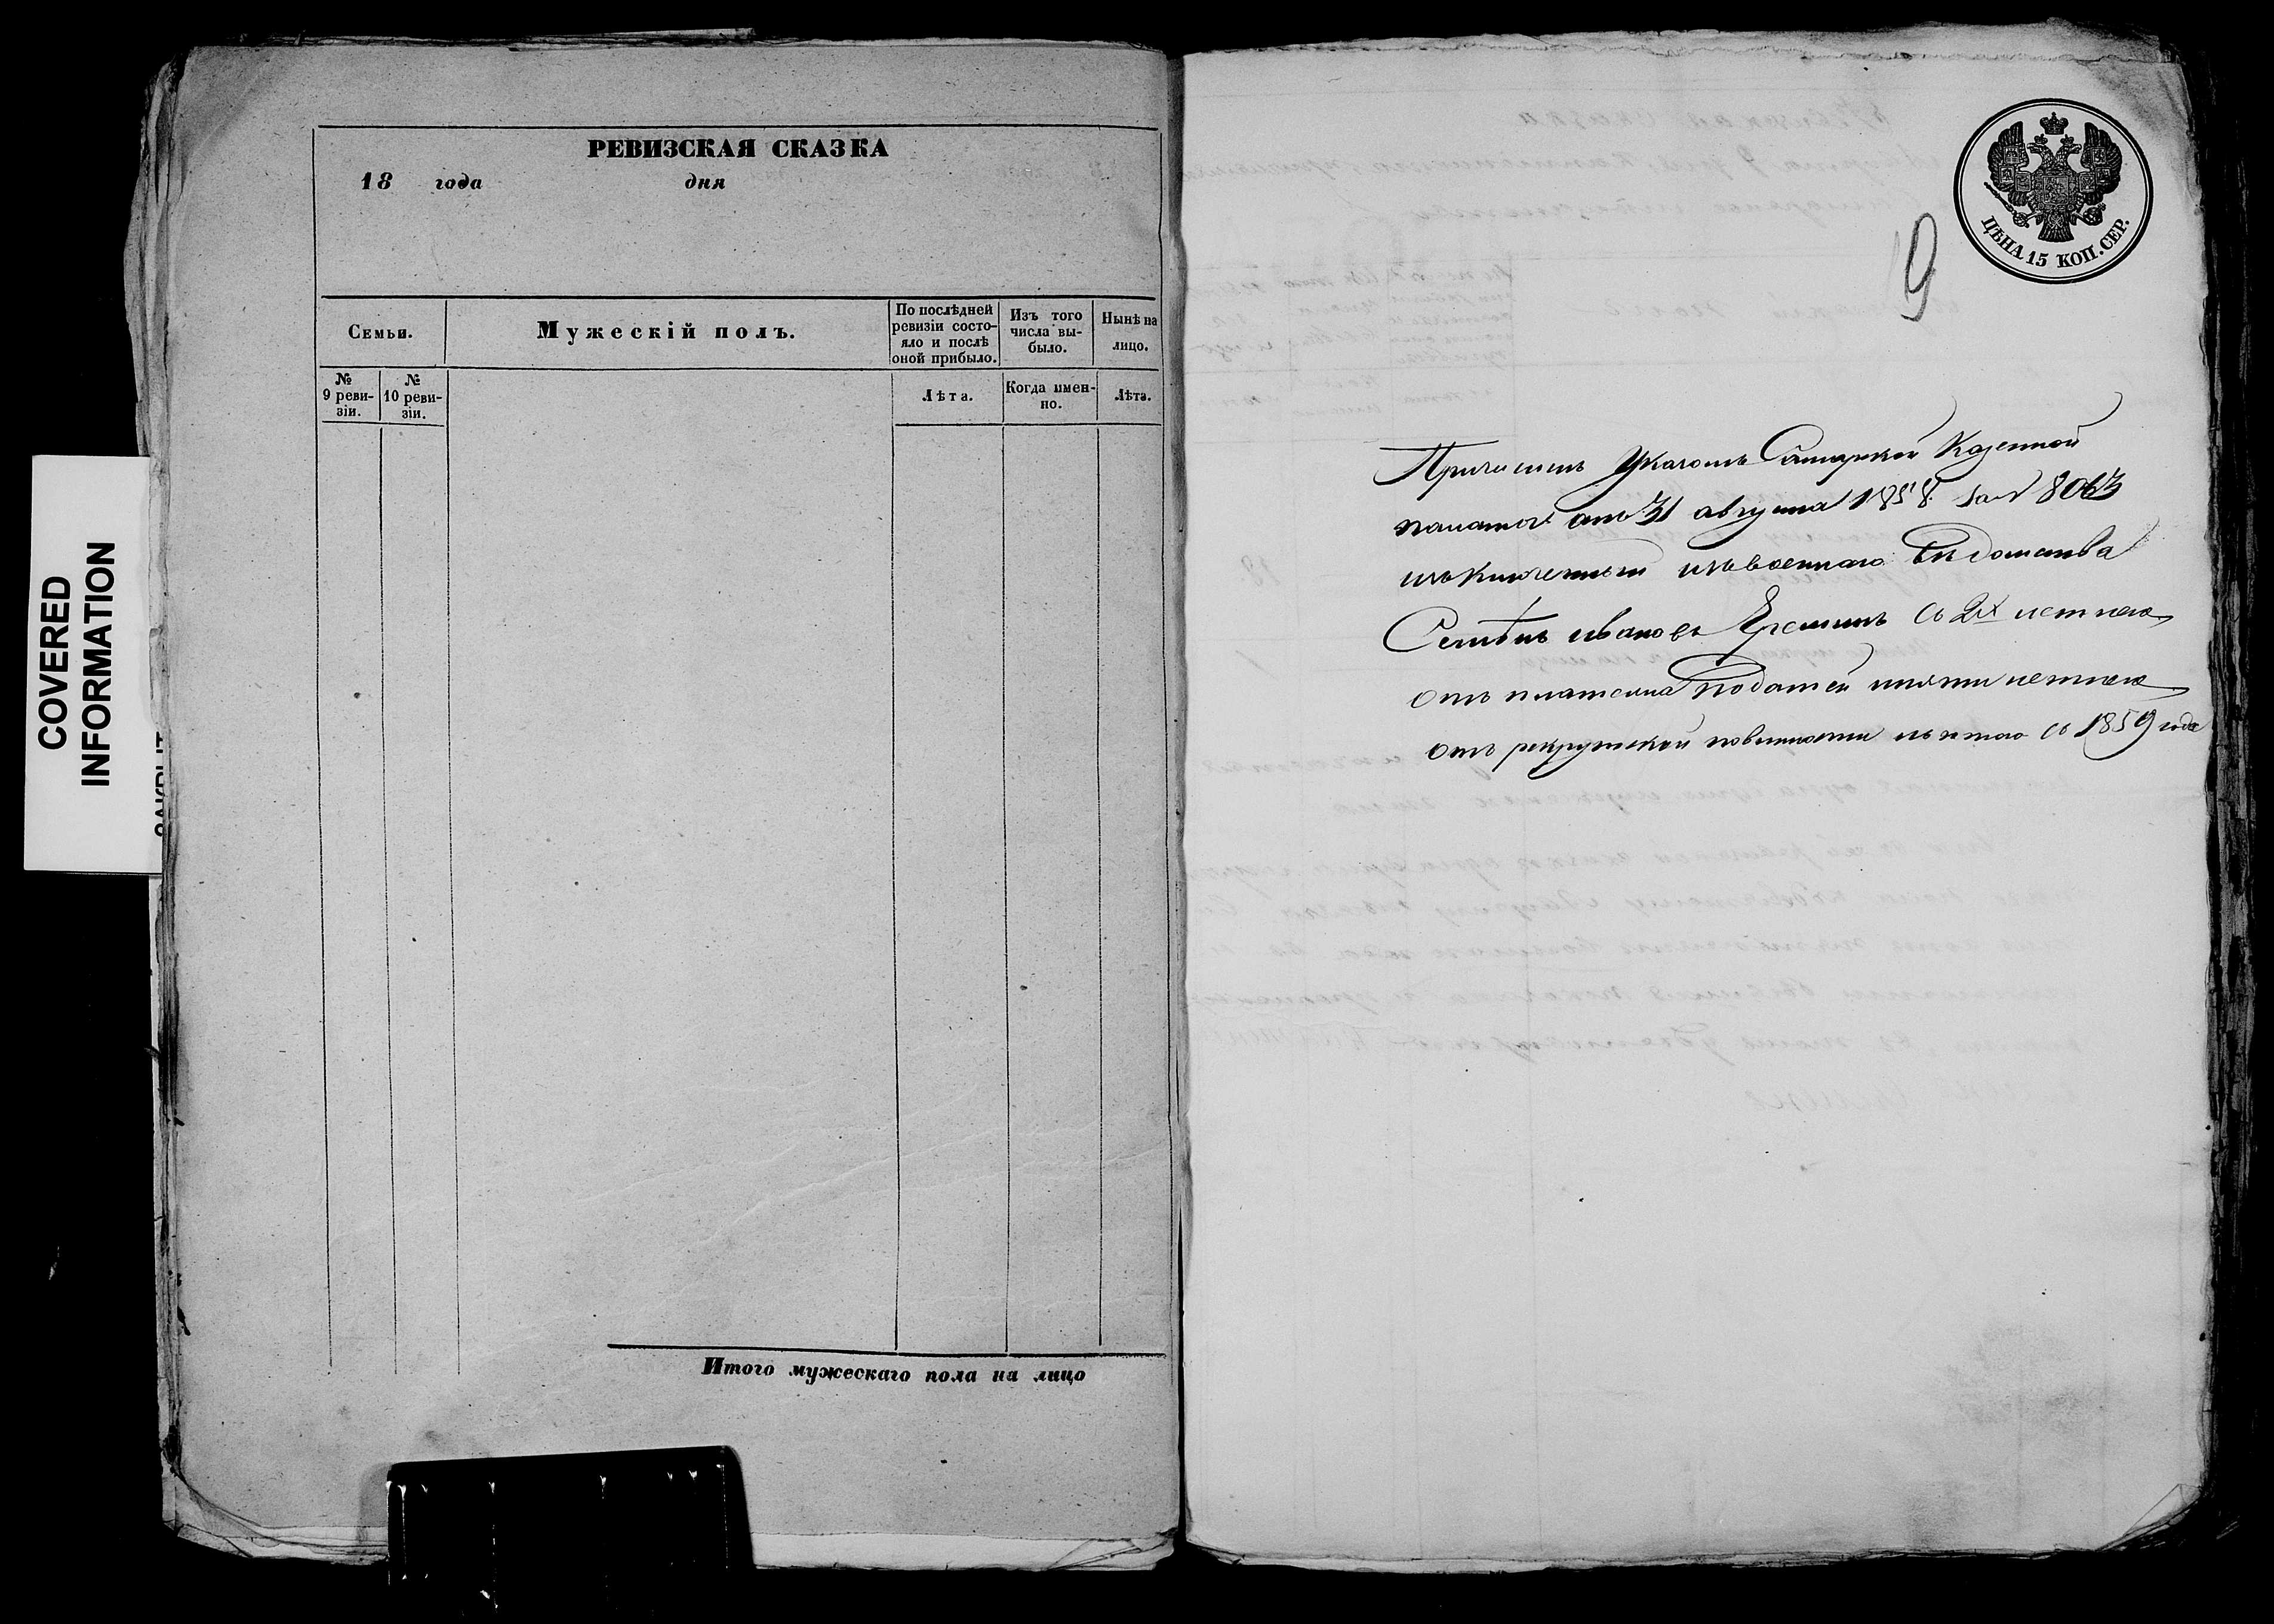 COVERED
INFORMATION
РЕВИЗСКАЯ СКАЗКА
18 года дня
Семьи.
Мужескій полъ.
По послѣдней
ревизіи состо-
яло и послѣ
оной прибыло.
Изъ того
числа вы-
было.
Нынѣ на
лицо.
№
9 реви-
зіи.
№
10 реви-
зіи.
Лѣта.
Когда имен-
но.
Лѣта.
Итого мужескаго пола на лицо
ЦѢНА 15 КОП. СЕР.
9
Причисленъ Указомъ Самарской Казенной
палаты отъ 31 августа 1858 за № 8063
изключенный изъ военнаго Вѣдомства
Семенъ Ивановъ Ереминъ съ 2х летнею
отъ платежа податей и пяти летнею
отъ рекрутской повинности льготою съ 1859 года